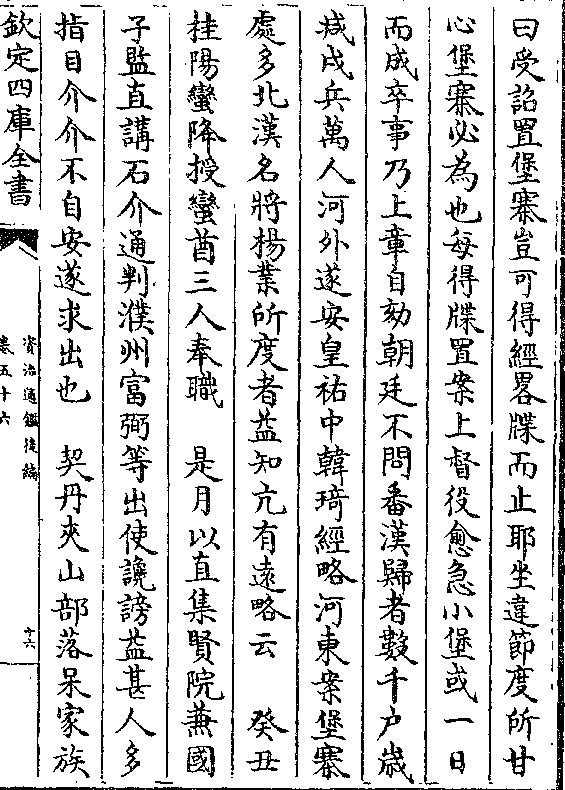 曰受詔置堡寨豈可得經畧牒而止耶坐違節度所甘
心堡寨必為也每得牒置案上督役愈急小堡或一日
而成卒事乃上章自劾朝廷不問番漢歸者數千户歲
减戍兵萬人河外遂安皇祐中韓琦經略河東案堡寨
處多北漢名將楊業所度者益知亢有遠略云　癸丑
桂陽蠻降授蠻酋三人奉職　是月以直集賢院兼國
子監直講石介通判濮州富弼等出使讒謗益甚人多
指目介介不自安遂求出也　契丹夾山部落呆家族
欽定四庫全書
資治通鑑後編
卷五十六
十六